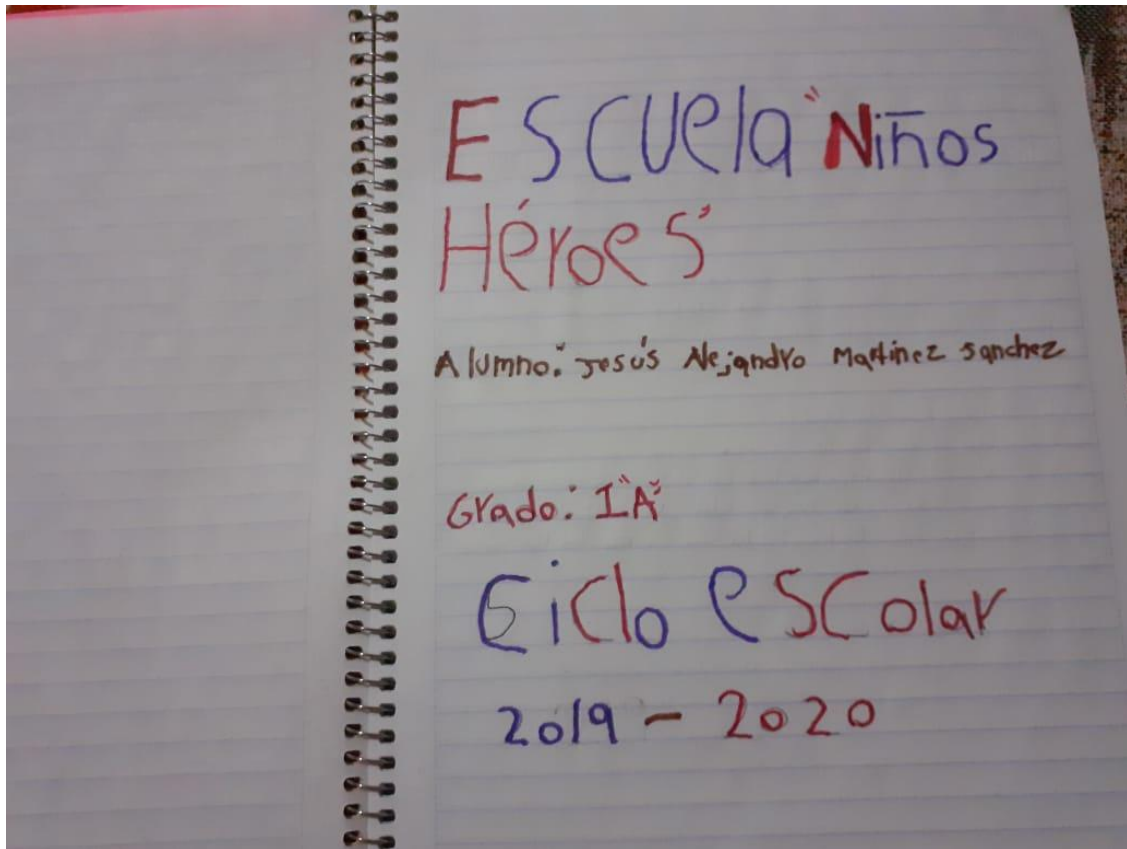 Escuela "Niños
Héroes"
Alumno: Jesús Alejandro Martinez Sanchez
Grado: I "A"
Ciclo escolar
2019 - 2020